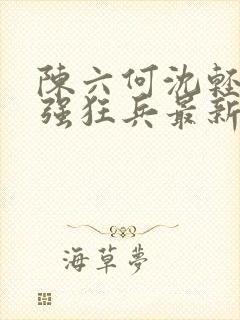 陳六何沈輕
强狂兵最新
海草夢